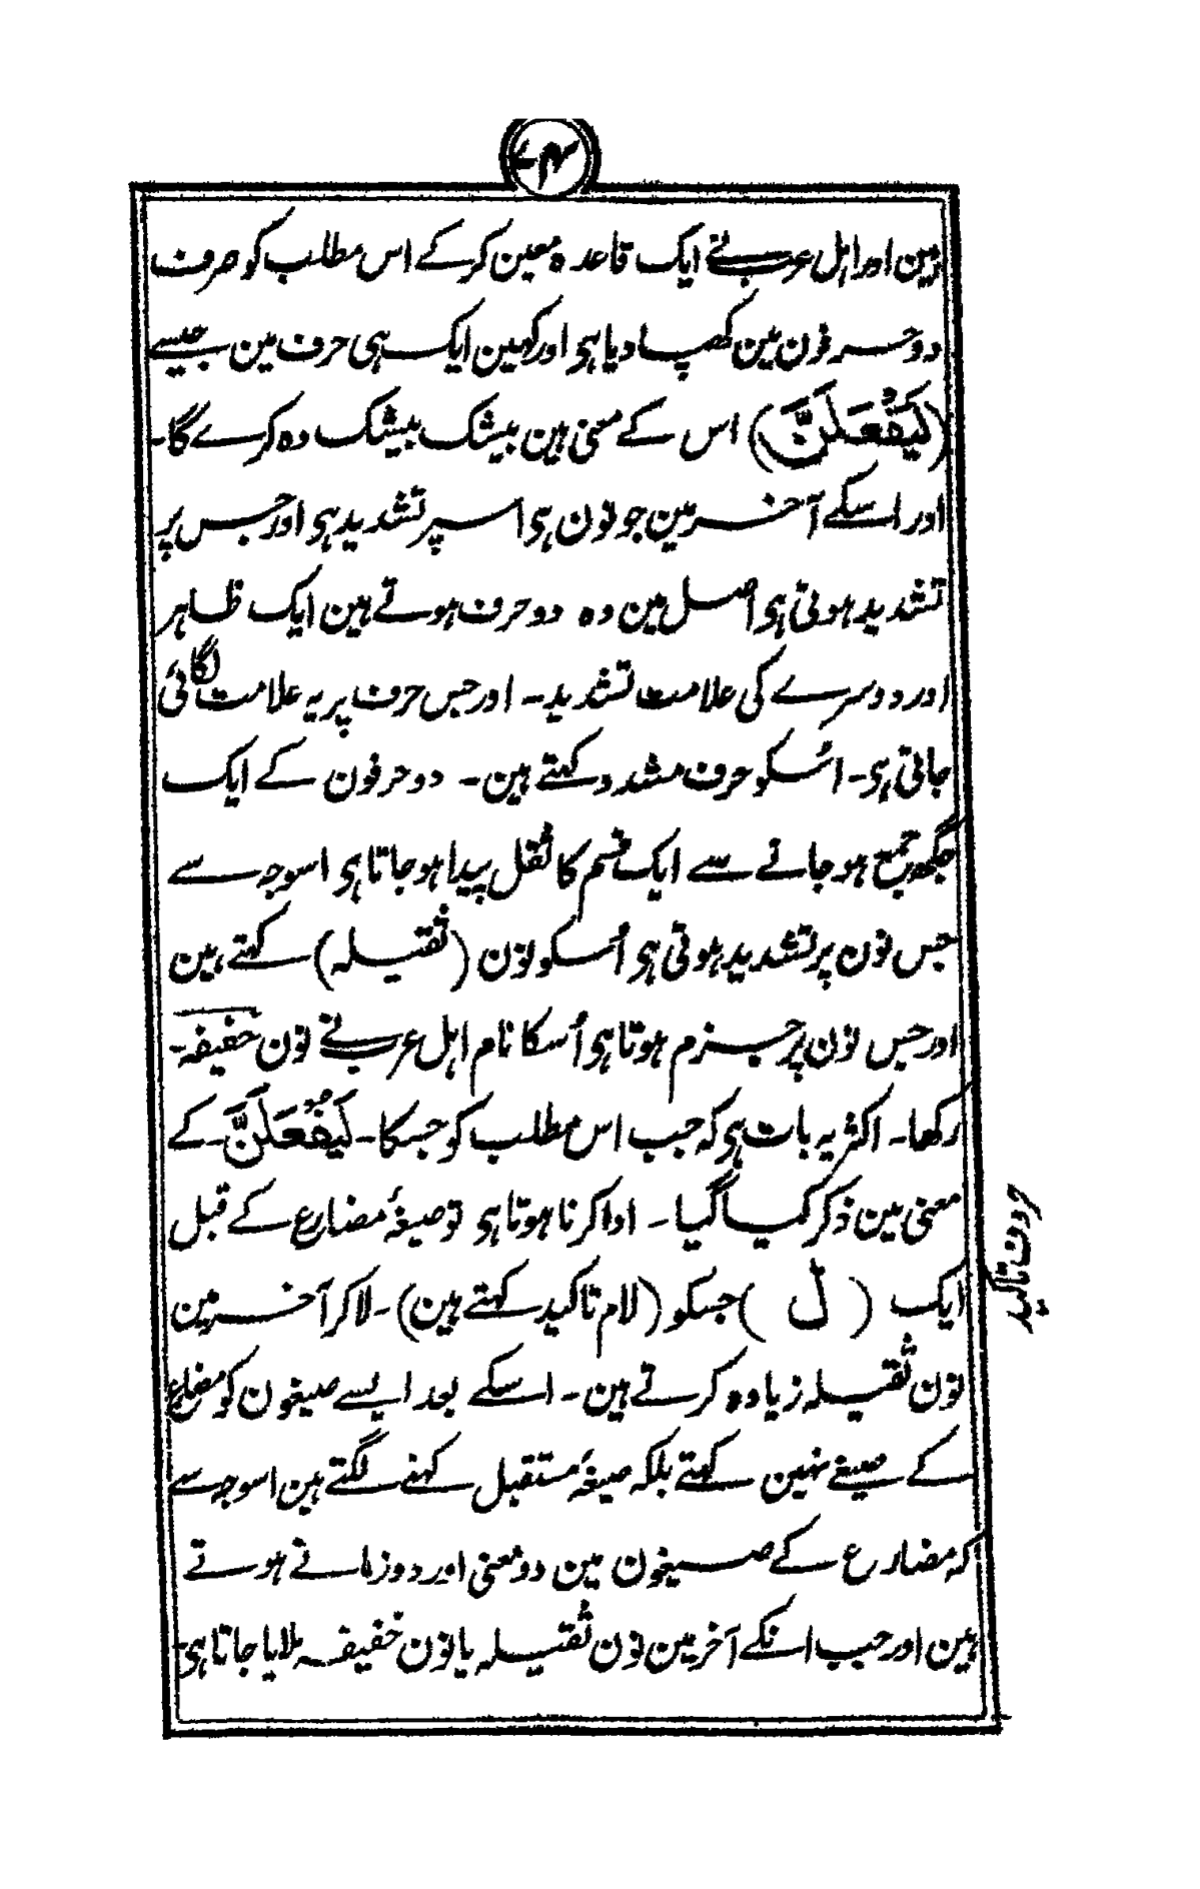 ۷۳
ہین اور اہل عرب نے ایک قاعدہ معین کرکے اس مطلب کو صرف
دو حرفون مین کھپا دیا ہی اور کہین ایک ہی حرف مین جیسے
(لَيَفْعَلَنَّ) اس کے معنی ہین بیشک بیشک وہ کرے گا۔
اور اسکے آخر مین جو نون ہی اسپر تشدید ہی اور جس پر
تشدید ہوتی ہی اصل مین وہ دو حرف ہوتے ہین ایک ظاہر
اور دوسرے کی علامت تشدید۔ اور جس حرف پر یہ علامت لگائی
جاتی ہی۔ اُسکو حرف مشدد کہتے ہین۔ دو حرفون کے ایک
جگہ جمع ہو جانے سے ایک قسم کا ثقل پیدا ہو جاتا ہی اسوجہ سے
جس نون پر تشدید ہوتی ہی اُسکو نون (ثقیلہ) کہتے ہین
اور جس نون پر جزم ہوتا ہی اُسکا نام اہل عرب نے نون خفیفہ۔
رکھا۔ اکثر یہ بات ہی کہ جب اس مطلب کو جسکا۔ لَيَفْعَلَنَّ۔ کے
معنی مین ذکر کیا گیا۔ ادا کرنا ہوتا ہی تو صیغۂ مضارع کے قبل
ایک ( لَ ) جسکو (لام تاکید کہتے ہین)۔ لاکر آخر مین
نون ثقیلہ زیادہ کرتے ہین۔ اسکے بعد ایسے صیغون کو مضارع
کے صیغے نہین کہتے بلکہ صیغۂ مستقبل کہنے لگتے ہین اسوجہ سے
کہ مضارع کے صیغون مین دو معنی اور دو زمانے ہوتے
ہین اور جب انکے آخر مین نون ثقیلہ یا نون خفیفہ ملایا جاتا ہی
حروف تاکید